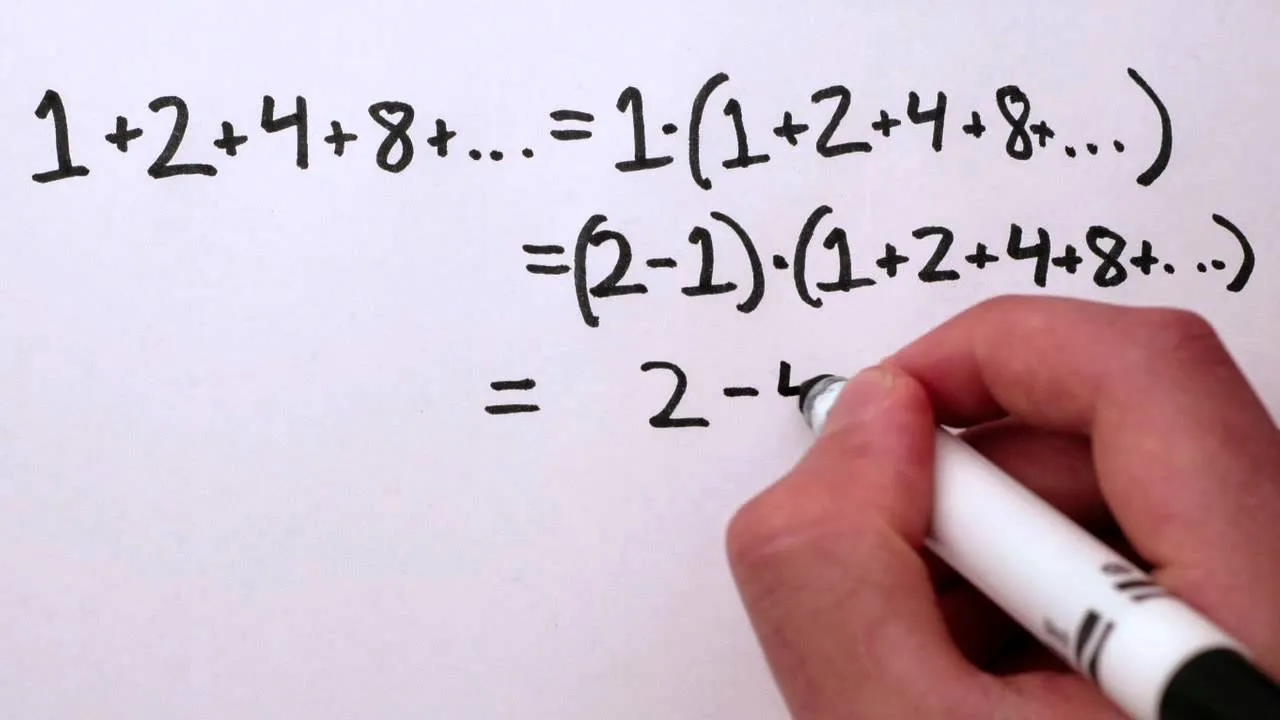 1+2+4+8+... = 1·(1+2+4+8+...)
=(2-1)·(1+2+4+8+...)
= 2-